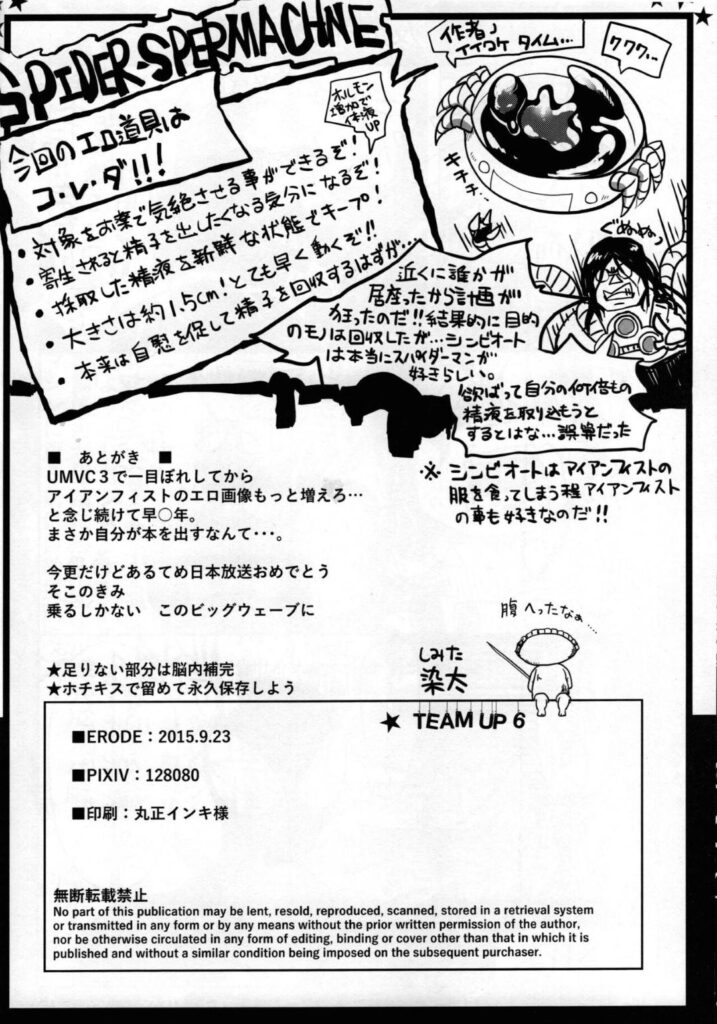 SPIDER-SPERMACHNE
今回のエロ道具は
コ・レ・ダ!!!
ホルモン
増加で
体液
UP
・対象をお薬で気絶させる事ができるぞ!
・寄生されると精子を出したくなる気分になるぞ!
・採取した精液を新鮮な状態でキープ!
・大きさは約1.5cm!とても早く動くぞ!!
・本来は自慰を促して精子を回収するはずが…
作者」
イイワケ タイム…
ククク…
キチチ…
ぐぬぬぬっ
近くに誰かが
居座ったから計画が
狂ったのだ!!結果的に目的
のモノは回収したが…シンビオート
は本当にスパイダーマンが
好きらしい。
欲ばって自分の何倍もの
精液を取り込もうと
するとはな…誤算だった
※ シンビオートはアイアンフィストの
服を食ってしまう程アイアンフィスト
の事も好きなのだ!!
■ あとがき ■
UMVC3で一目ぼれしてから
アイアンフィストのエロ画像もっと増えろ…
と念じ続けて早〇年。
まさか自分が本を出すなんて・・・。
今更だけどあるてめ日本放送おめでとう
そこのきみ
乗るしかない このビッグウェーブに
腹へったなぁ……
しみた
染太
★足りない部分は脳内補完
★ホチキスで留めて永久保存しよう
★ TEAM UP 6
■ERODE:2015.9.23
■PIXIV:128080
■印刷:丸正インキ様
無断転載禁止
No part of this publication may be lent, resold, reproduced, scanned, stored in a retrieval system
or transmitted in any form or by any means without the prior written permission of the author,
nor be otherwise circulated in any form of editing, binding or cover other than that in which it is
published and without a similar condition being imposed on the subsequent purchaser.